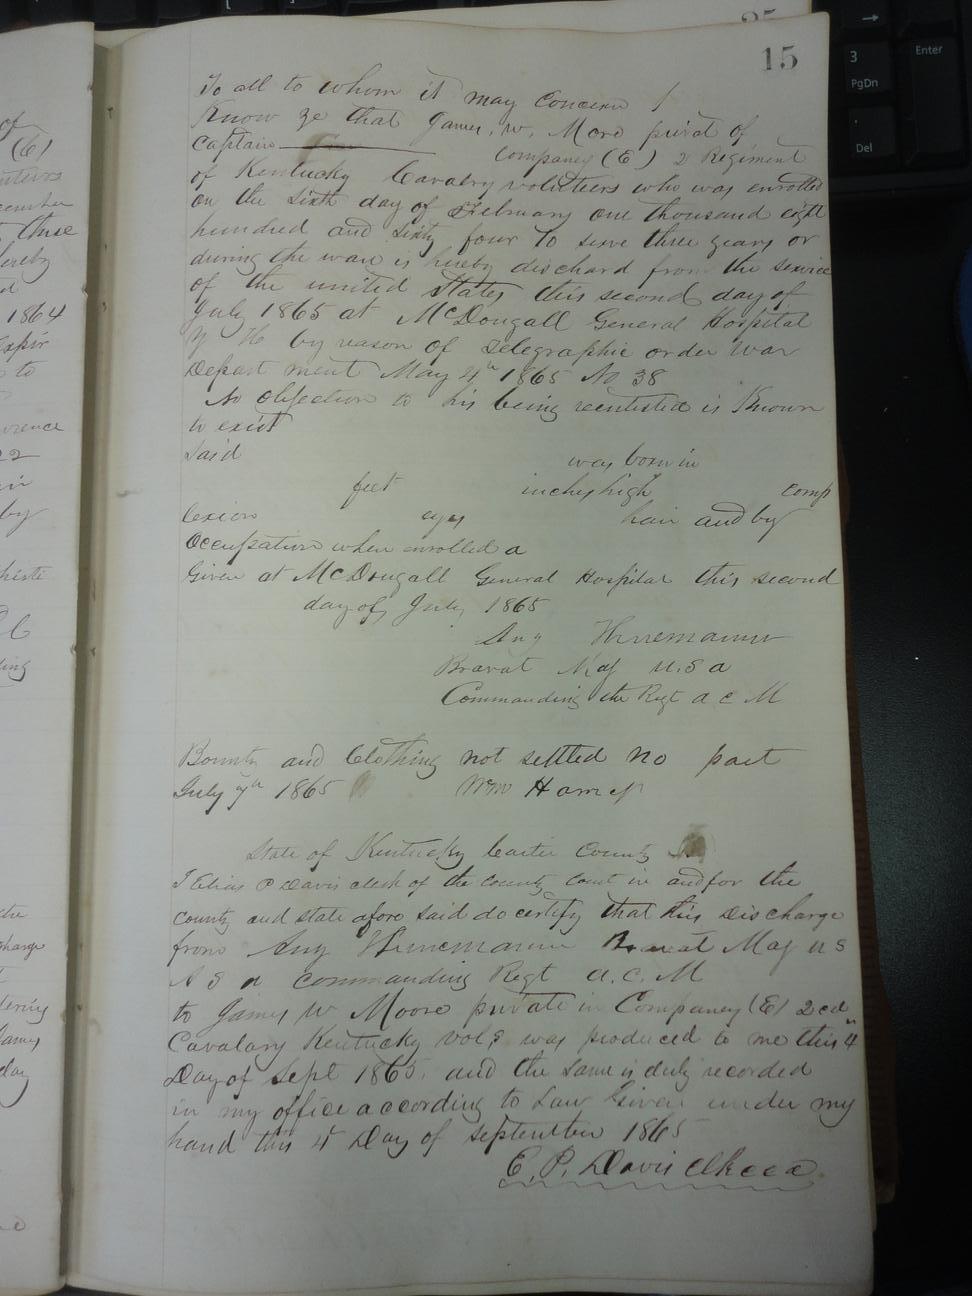 15
To all to whom it may concern
Know ye that James, W, More privat of
Captain Company (E) 2 Regiment
of Kentucky Cavalry volunteers who was enrolled
on the sixth day of February one thousand eight
hundred and sixty four to serve three years or
during the ware is hereby dischard from the service
of the united States this second day of
July 1865 at McDougall General Hospital
by reason of Telegraphic order War
Depart ment May 4th 1865 No 38
No objection to his being reenlisted is Known
to exist
Said was born in
feet inches high comp
lexion eyes hair and by
Occupation when enrolled a
Given at McDougall General Hospital this second
day of July 1865
Bravat Maj U.S a
Commanding the Regt a c M
Bounty and Clothing not settled no paet
July 7th 1865 Wm
State of Kentucky Carter County
I Elias P Davis clerk of the county court in and for the
county and state afore said do certify that this Discharge
from Maj U S
commanding Regt a.c. M
to James W Moore private in Company (E) 2cd
Cavalary Kentucky vols was produced to me this 4
Day of Sept 1865. and the same is duly recorded
in my office according to Law Given under my
hand this 4 Day of September 1865
E. P. Davis
3
PgDn
Enter
Del
(E)
1864
to
22
by
day